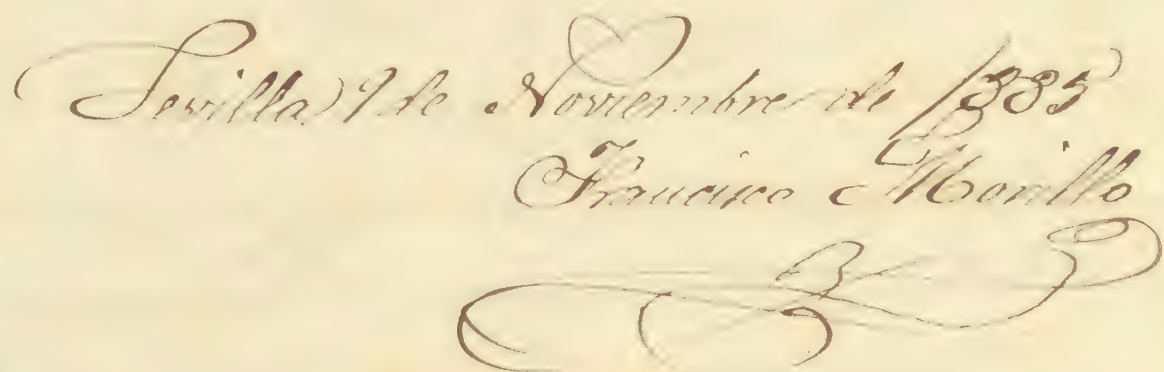 Sevilla 9 de Noviembre de 1885
Francisco Morillo